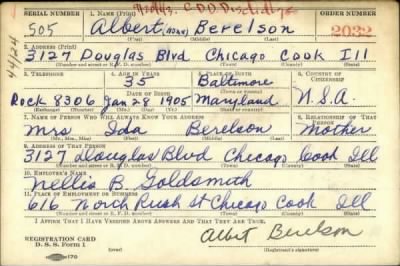 SERIAL NUMBER 1. NAME (Print) ORDER NUMBER
505 Albert (NONE) Berelson 2032
(First) (Middle) (Last)
2. ADDRESS (Print)
3127 Douglas Blvd Chicago Cook Ill
(Number and street or R. F. D. number) (Town) (County) (State)
3. TELEPHONE 4. AGE IN YEARS 5. PLACE OF BIRTH 6. COUNTRY OF CITIZENSHIP
35 Baltimore
DATE OF BIRTH (Town or county)
Rock 8306 Jan 28 1905 Maryland U.S.A.
(Exchange) (Number) (Mo.) (Day) (Yr.) (State or country)
7. NAME OF PERSON WHO WILL ALWAYS KNOW YOUR ADDRESS 8. RELATIONSHIP OF THAT PERSON
Mrs Ida Berelson Mother
(Mr., Mrs., Miss) (First) (Middle) (Last)
9. ADDRESS OF THAT PERSON
3127 Douglas Blvd Chicago Cook Ill
(Number and street or R. F. D. number) (Town) (County) (State)
10. EMPLOYER'S NAME
Nellie B. Goldsmith
11. PLACE OF EMPLOYMENT OR BUSINESS
616 North Rush St Chicago Cook Ill
(Number and street or R. F. D. number) (Town) (County) (State)
I AFFIRM THAT I HAVE VERIFIED ABOVE ANSWERS AND THAT THEY ARE TRUE.
REGISTRATION CARD
D. S. S. Form 1
Albert Berelson
(Registrant's signature)